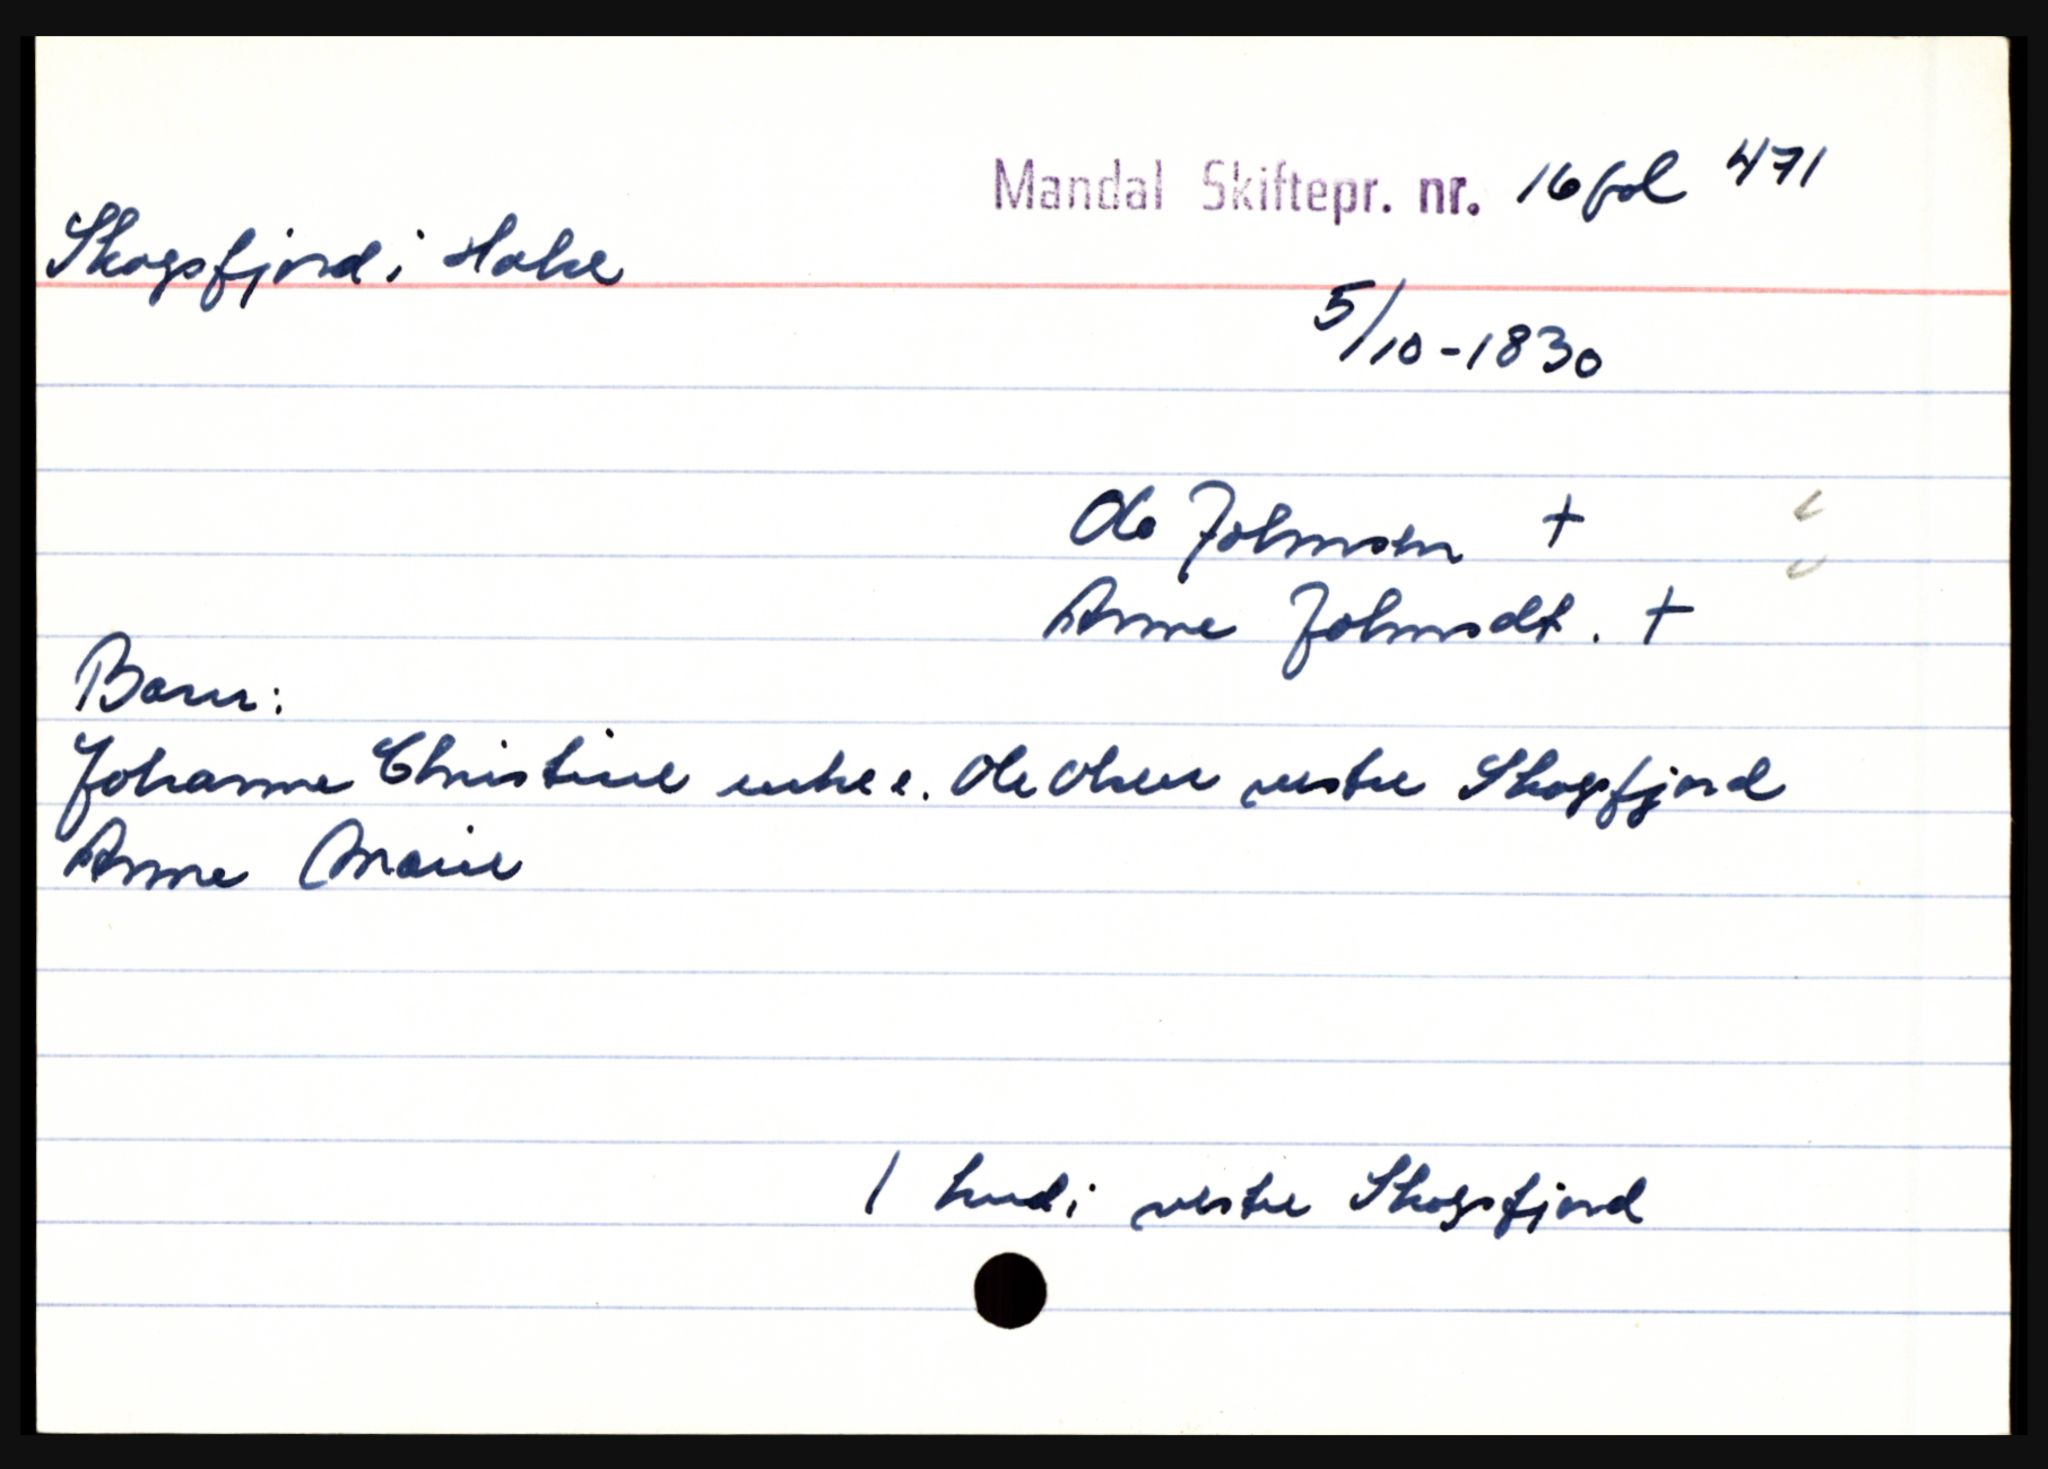 Mandal Skiftepr. nr. 16 fol 471
Skogsfjord i Holse
5/10-1830
Ole Johnsen +
Anne Johnsdt. +
Barn:
Johanne Christine enke e. Ole Olsen vestre Skogsfjord
Anne Marie
1 hud i vestre Skogsfjord